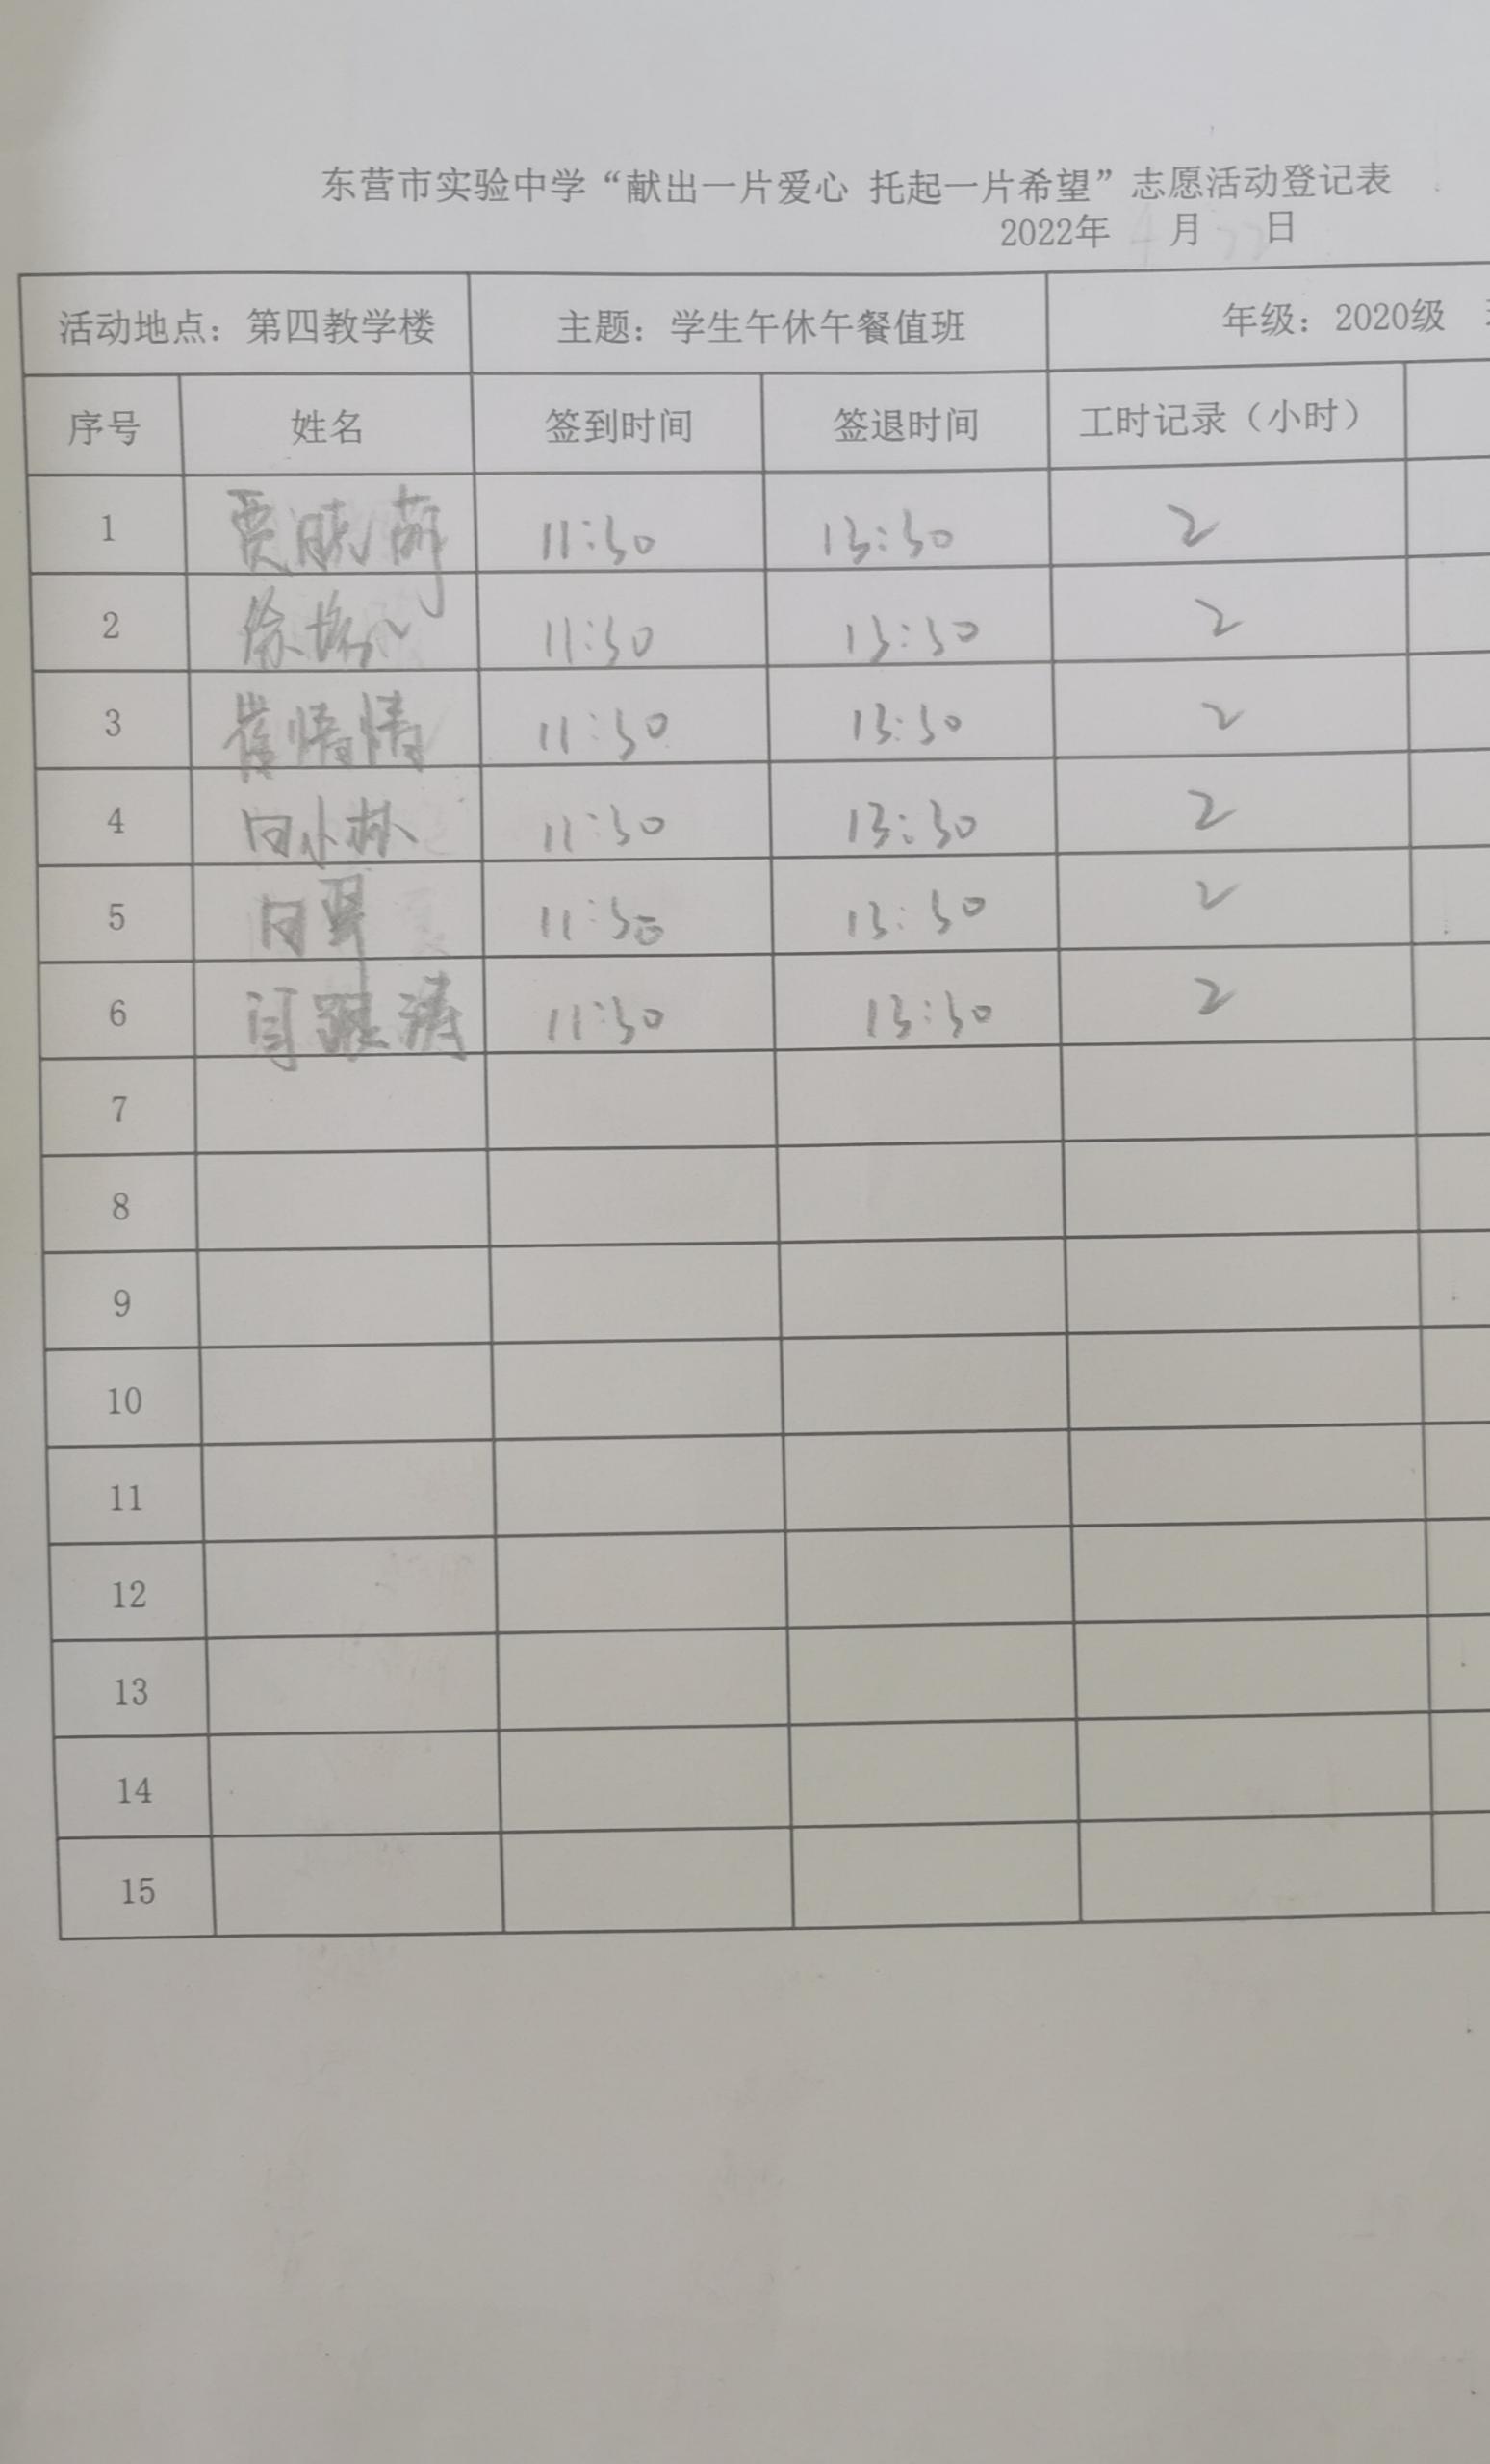 东营市实验中学“献出一片爱心 托起一片希望”志愿活动登记表
2022年 4 月 22 日
活动地点：第四教学楼 主题：学生午休午餐值班 年级：2020级
序号 姓名 签到时间 签退时间 工时记录（小时）
1 贾晓萌 11:30 13:30 2
2 徐 11:30 13:30 2
3 崔情情 11:30 13:30 2
4 闫小林 11:30 13:30 2
5 11:30 13:30 2
6 11:30 13:30 2
7
8
9
10
11
12
13
14
15